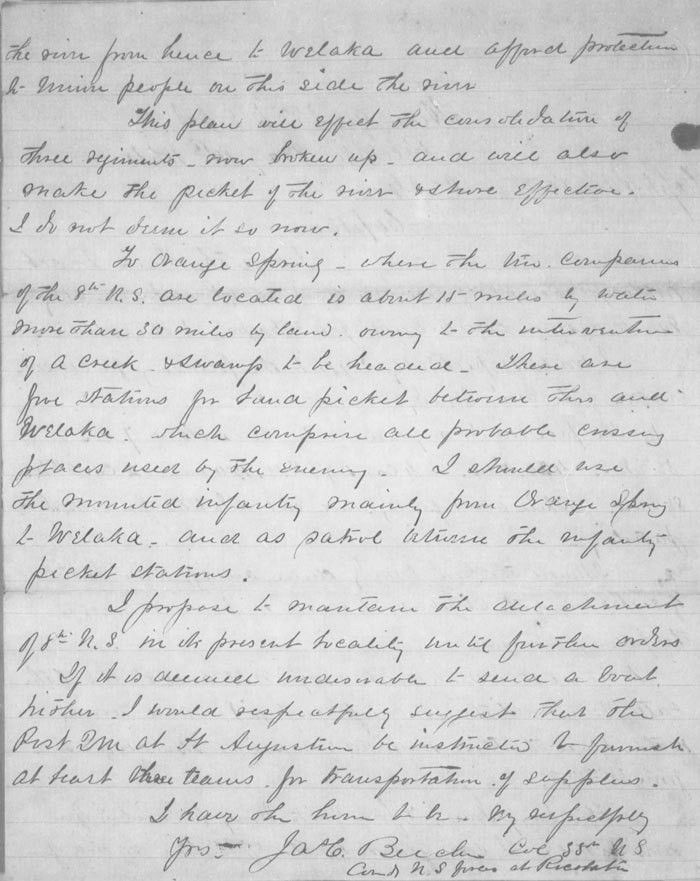 the river from hence to Welaka and afford protection
to Union people on this side the river
This plan will effect the consolidation of
three regiments - now broken up - and will also
make the picket of the river & shore effective.
I do not deem it so now.
To Orange Spring - where the two companies
of the 8th U.S. are located is about 15 miles by water
more than 30 miles by land. owing to the intervention
of a creek & swamp to be headed - There are
five stations for land picket between this and
Welaka. which comprise all probable crossing
places used by the enemy - I should use
the mounted infantry mainly from Orange Spring
to Welaka - and as patrol between the infantry
picket stations.
I propose to maintain the detachment
of 8th U.S. in its present locality until further orders
If it is deemed undesirable to send a boat
hither - I would respectfully suggest that the
Post QM at St Augustine be instructed to furnish
at least three teams for transportation of supplies.
I have the honor to be - Very respectfully
Yrs - Jas C. Beecher Col 35th U S
Comd U.S forces at